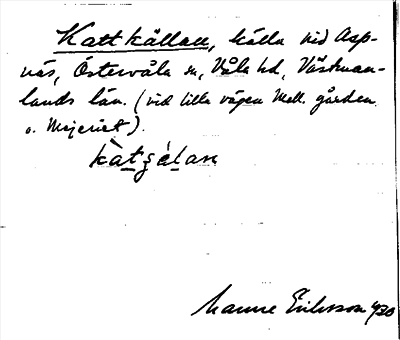 Kattkällan, källa vid Asp-
näs, Östervåla sn, Våla hd, Västman-
lands län. (vid lilla vägen mell. gården
o. Mejeriet).
kàtšä́lan
Manne Eriksson 1930